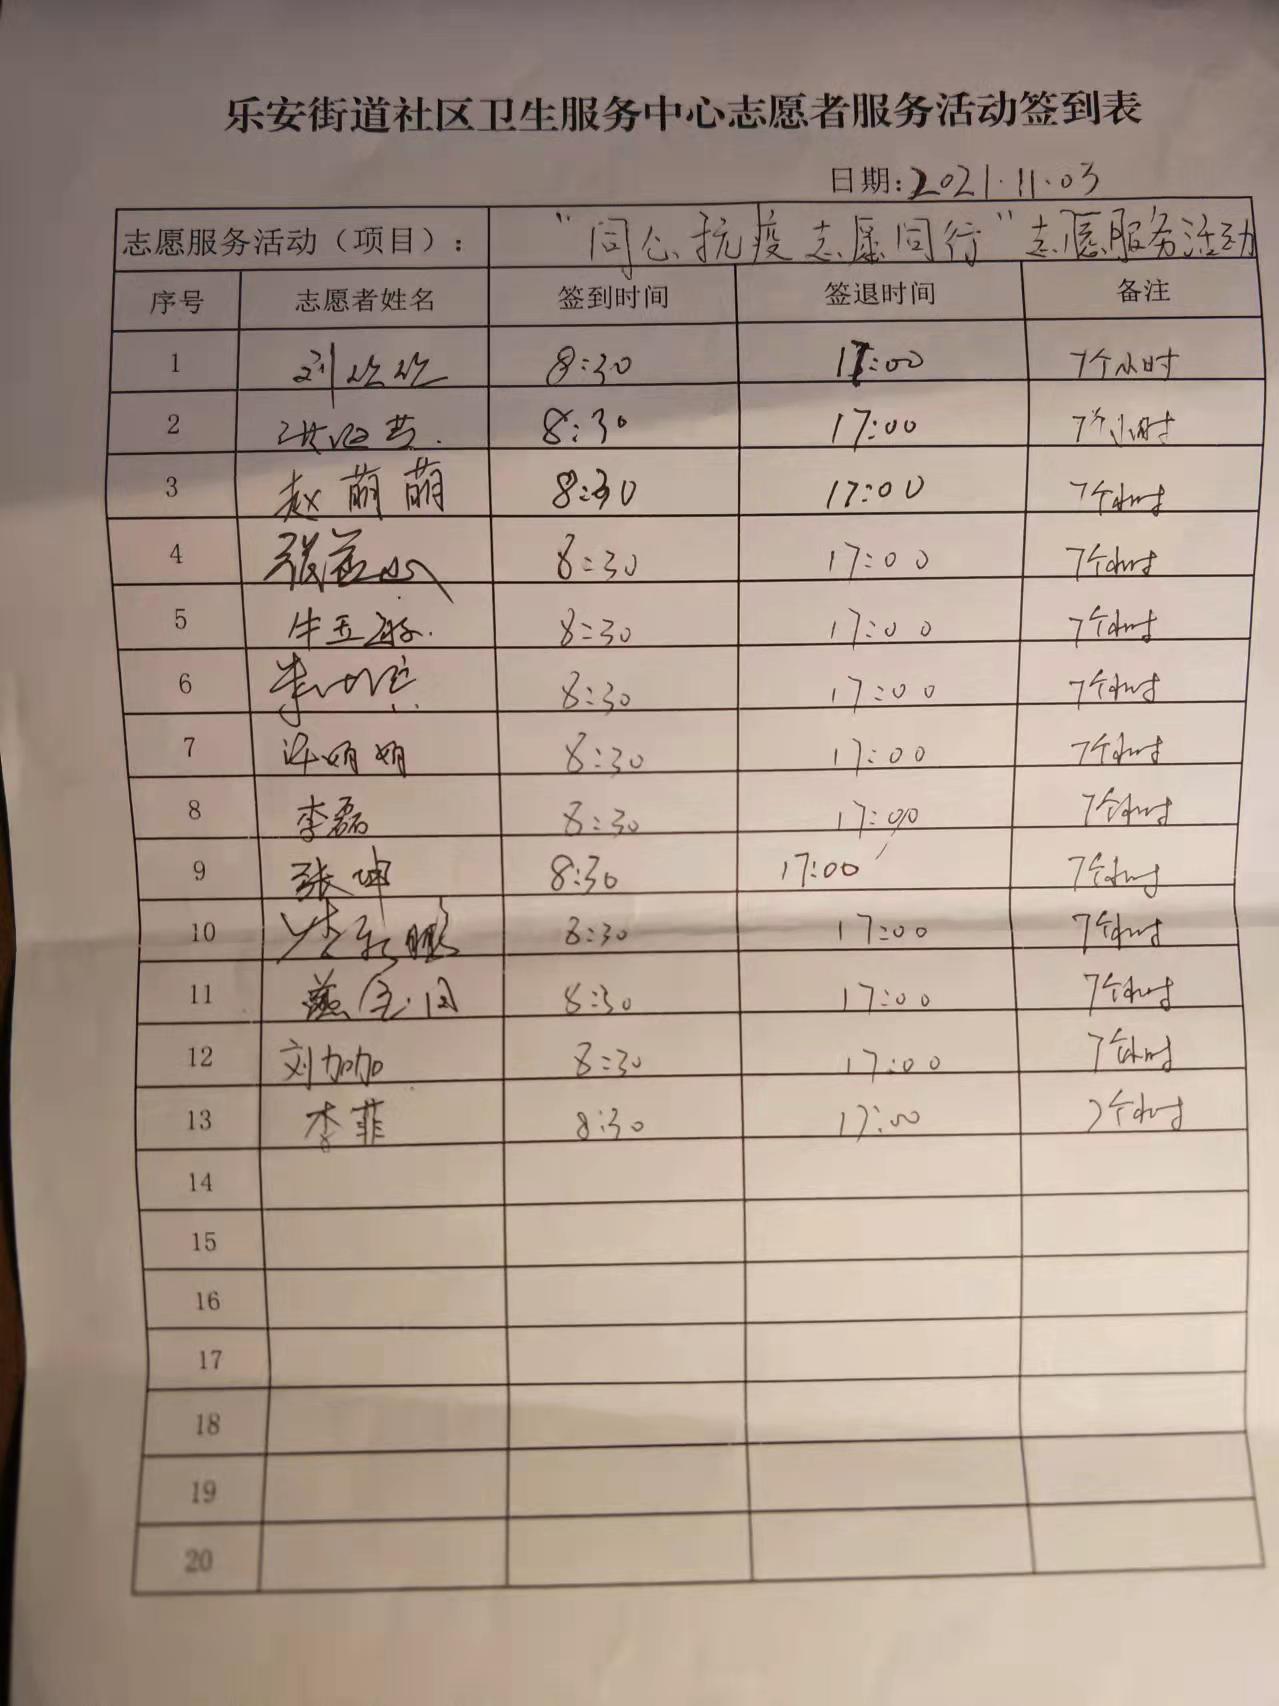 乐安街道社区卫生服务中心志愿者服务活动签到表
日期:2021.11.03
志愿服务活动（项目）: "同心抗疫志愿同行"志愿服务活动
序号 志愿者姓名 签到时间 签退时间 备注
1 刘 8:30 17:00 7个小时
2 8:30 17:00 7个小时
3 赵萌萌 8:30 17:00 7个小时
4 张 8:30 17:00 7个小时
5 牛玉 8:30 17:00 7个小时
6 李 8:30 17:00 7个小时
7 许娟娟 8:30 17:00 7个小时
8 李磊 8:30 17:00 7个小时
9 张坤 8:30 17:00 7个小时
10 鹏 8:30 17:00 7个小时
11 8:30 17:00 7个小时
12 刘加加 8:30 17:00 7个小时
13 李菲 8:30 17:00 7个小时
14
15
16
17
18
19
20